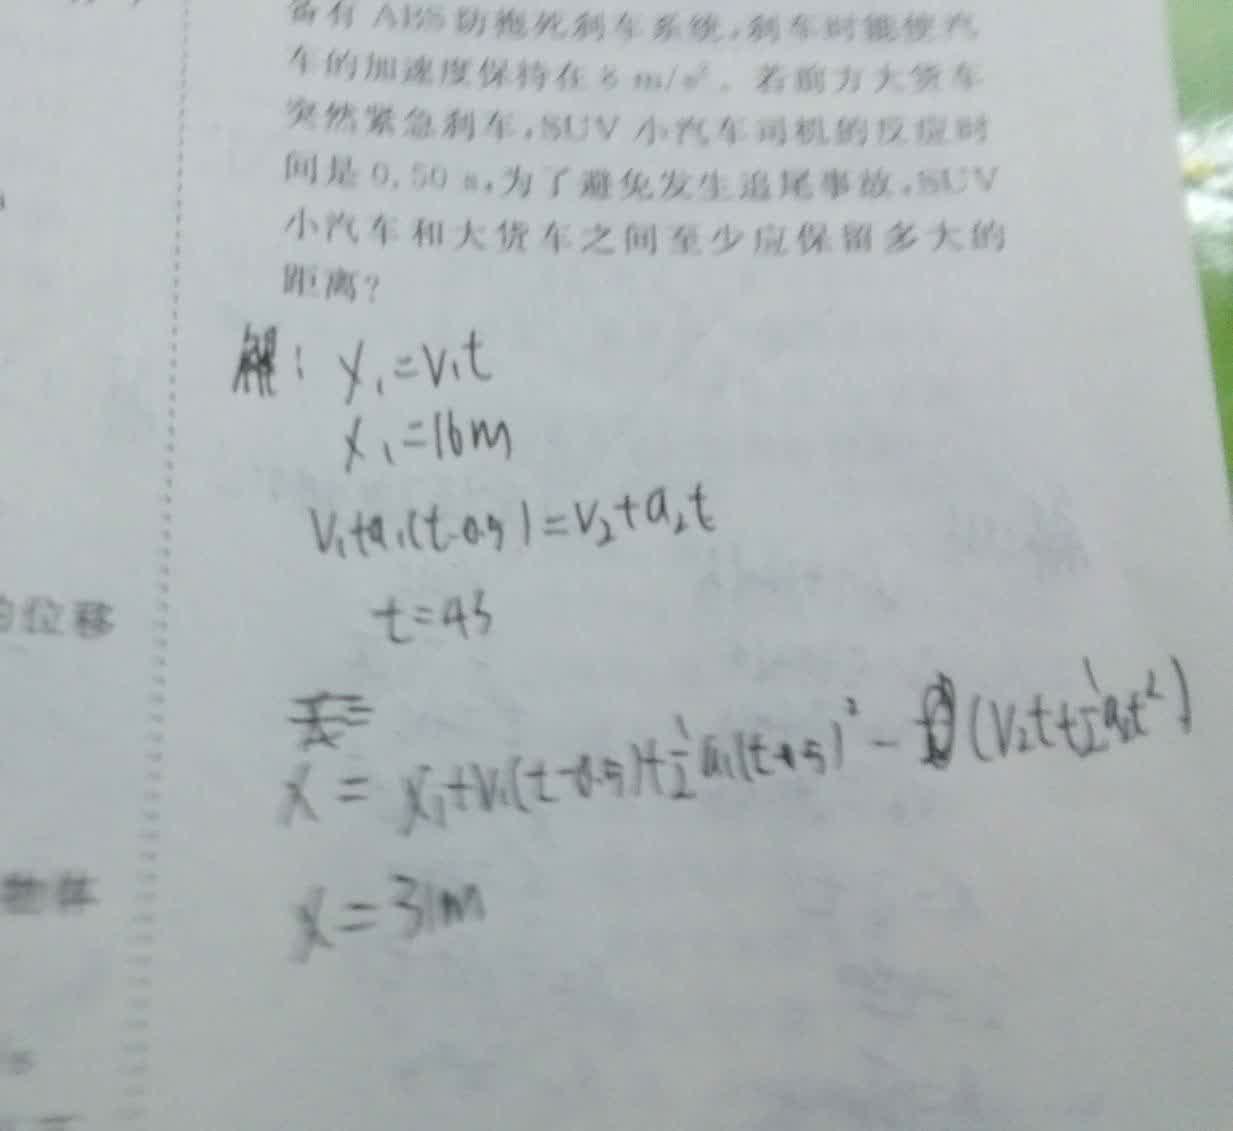 备有ABS防抱死刹车系统,刹车时能使汽
车的加速度保持在8 m/s²。若前方大货车
突然紧急刹车,SUV小汽车司机的反应时
间是0.50 s,为了避免发生追尾事故,SUV
小汽车和大货车之间至少应保留多大的
距离?
解: X₁=V₁t
X₁=16m
V₁+a₁(t-0.5)=V₂+a₂t
t=4s
的位移
X = X₁+V₁(t-0.5)+½a₁(t-0.5)²-(V₂t+½a₂t²)
物体
X=31m